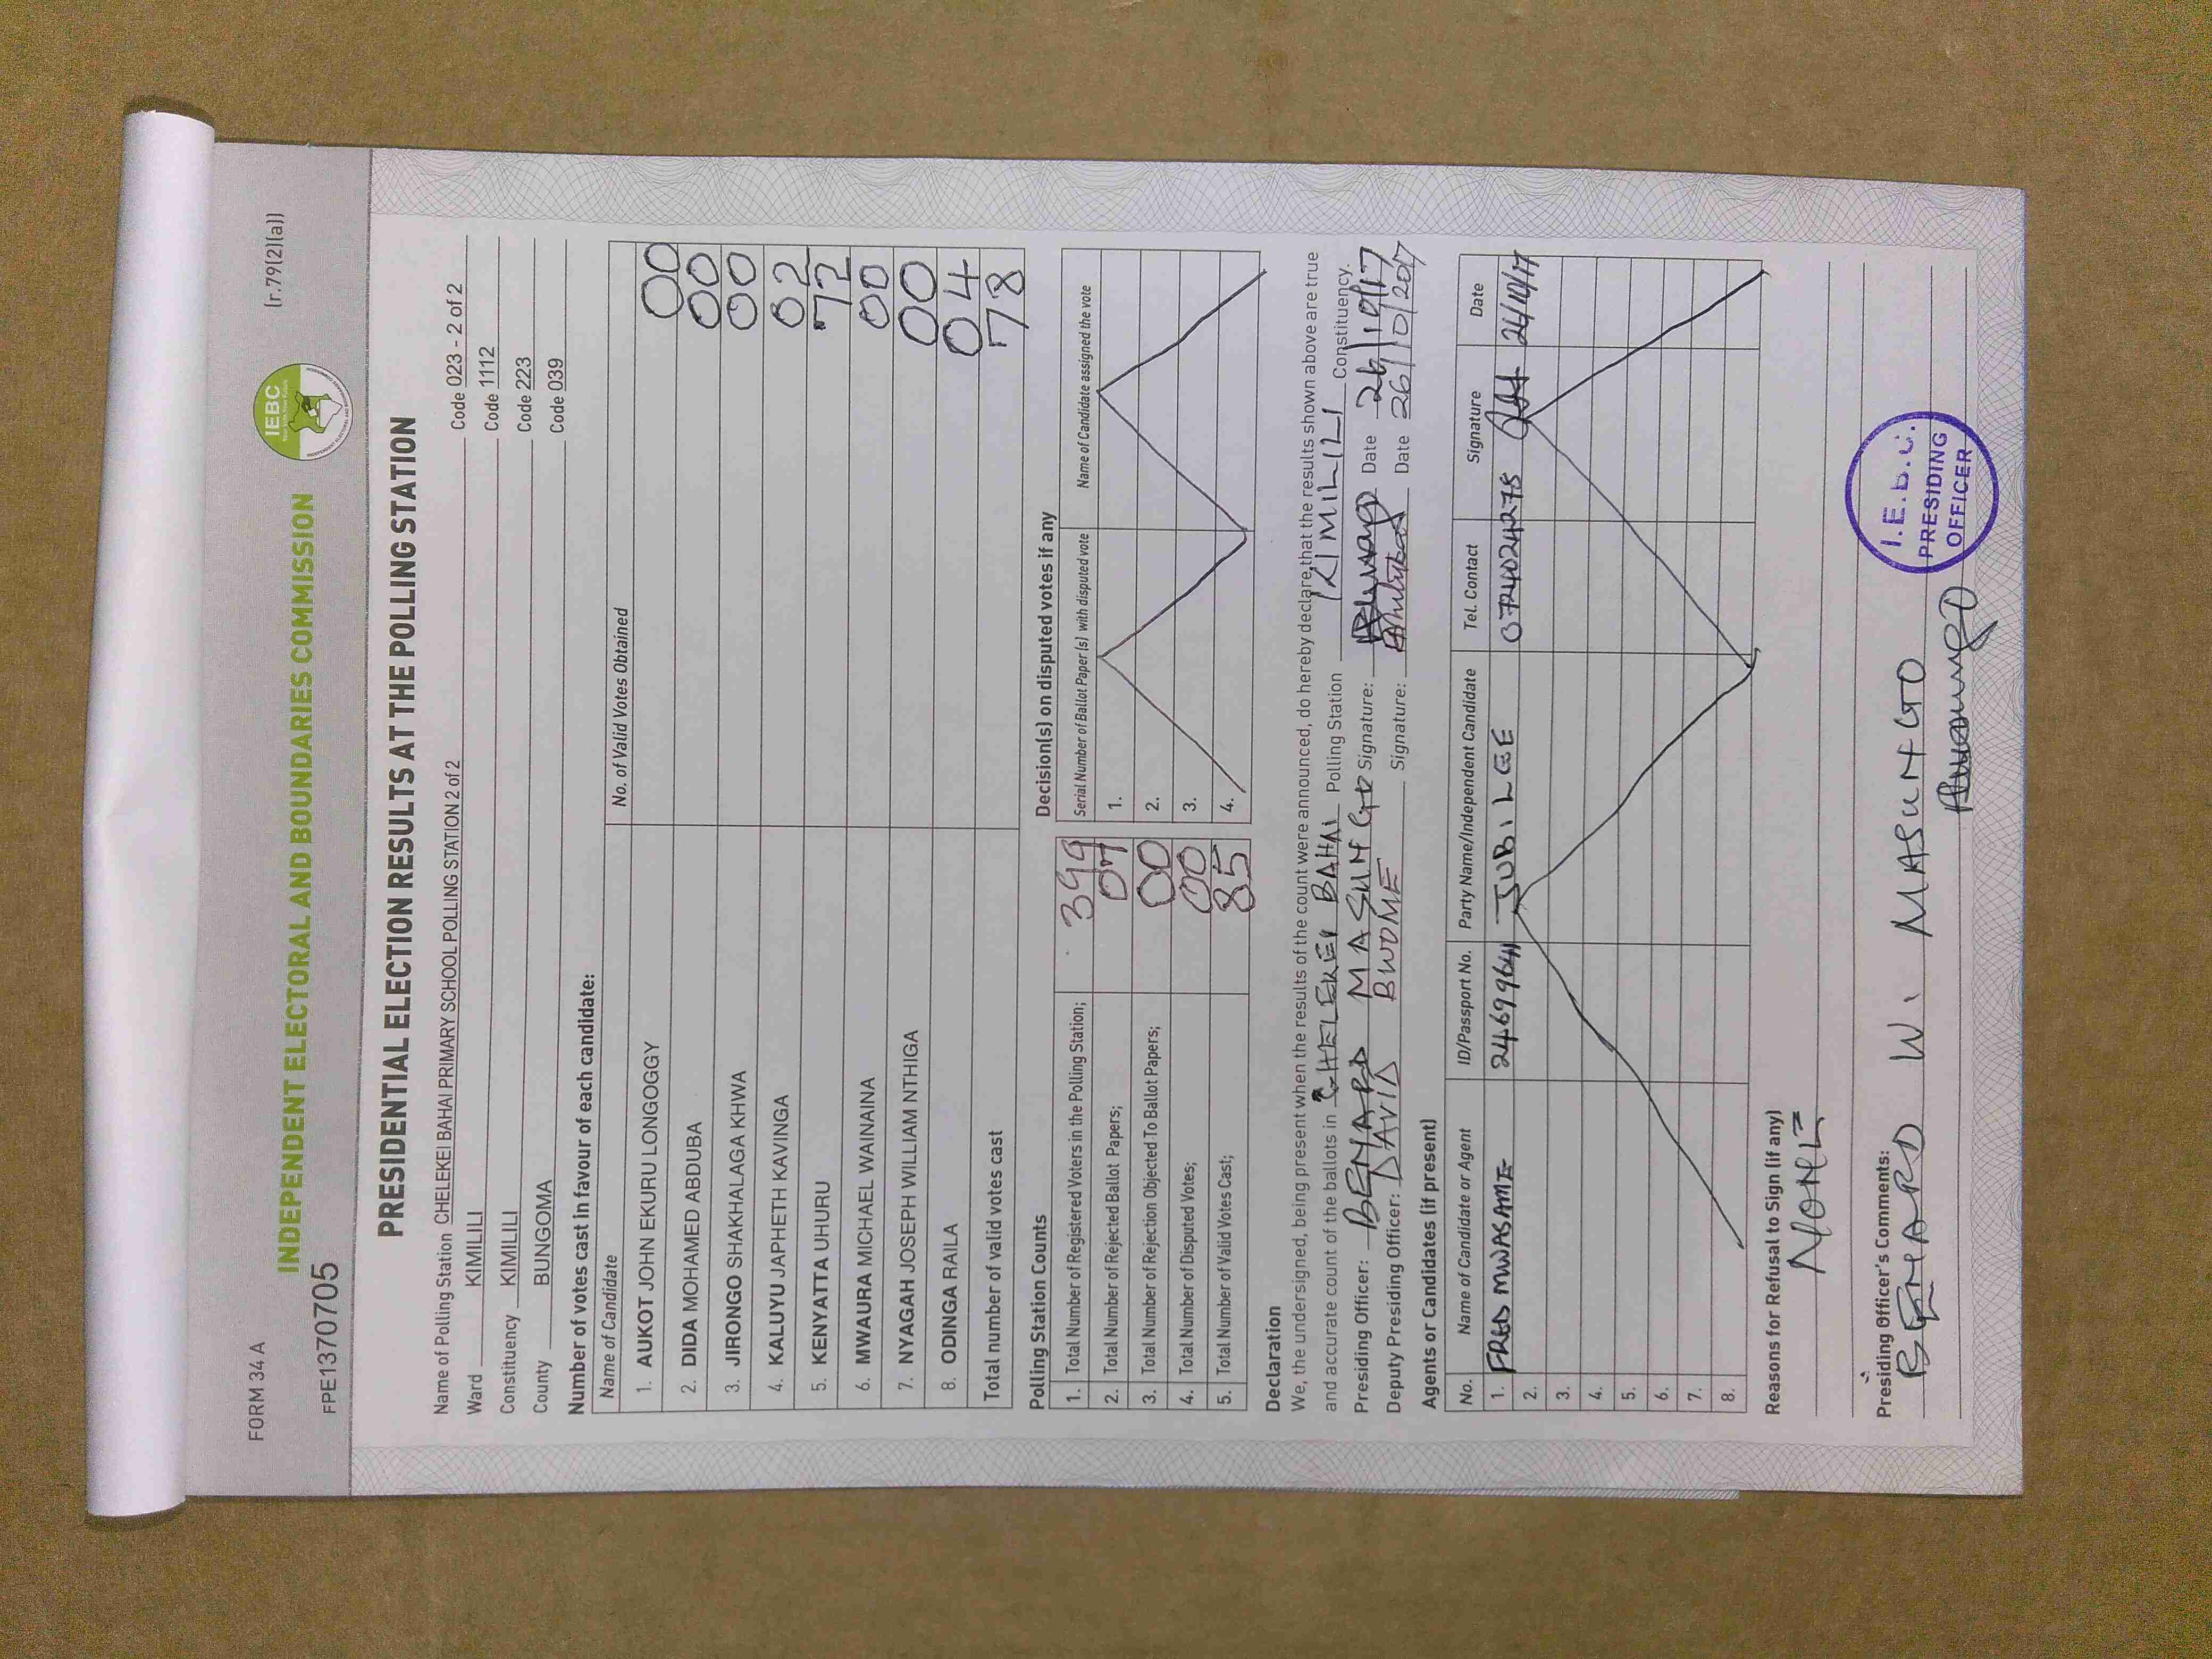 FORM 34 A
(r.79(2)(a))
IEBC
INDEPENDENT ELECTORAL AND BOUNDARIES COMMISSION
FPE1370705
PRESIDENTIAL ELECTION RESULTS AT THE POLLING STATION
Name of Polling Station CHELEKEI BAHAI PRIMARY SCHOOL POLLING STATION 2 of 2 Code 023 - 2 of 2
Ward KIMILILI Code 1112
Constituency KIMILILI Code 223
County BUNGOMA Code 039
Number of votes cast in favour of each candidate:
Name of Candidate No. of Valid Votes Obtained
1. AUKOT JOHN EKURU LONGOGGY 00
2. DIDA MOHAMED ABDUBA 00
3. JIRONGO SHAKHALAGA KHWA 00
4. KALUYU JAPHETH KAVINGA 02
5. KENYATTA UHURU 72
6. MWAURA MICHAEL WAINAINA 00
7. NYAGAH JOSEPH WILLIAM NTHIGA 00
8. ODINGA RAILA 04
Total number of valid votes cast 78
Polling Station Counts
1. Total Number of Registered Voters in the Polling Station; 399
2. Total Number of Rejected Ballot Papers; 07
3. Total Number of Rejection Objected To Ballot Papers; 00
4. Total Number of Disputed Votes; 00
5. Total Number of Valid Votes Cast; 85
Decision(s) on disputed votes if any
Serial Number of Ballot Paper (s) with disputed vote Name of Candidate assigned the vote
1.
2.
3.
4.
Declaration
We, the undersigned, being present when the results of the count were announced, do hereby declare that the results shown above are true
and accurate count of the ballots in CHELEKEI BAHAI Polling Station KIMILILI Constituency.
Presiding Officer: BENARD MASUNGO Signature: Date 26/10/17
Deputy Presiding Officer: DAVID BWOME Signature: Date 26/10/2017
Agents or Candidates (if present)
No. Name of Candidate or Agent ID/Passport No. Party Name/Independent Candidate Tel. Contact Signature Date
1. FRED MWASAME 24699641 JUBILEE 0724024275 26/10/17
2.
3.
4.
5.
6.
7.
8.
Reasons for Refusal to Sign (if any)
NONE
Presiding Officer's Comments:
BENARD W. MASUNGO
I.E.B.C.
PRESIDING
OFFICER